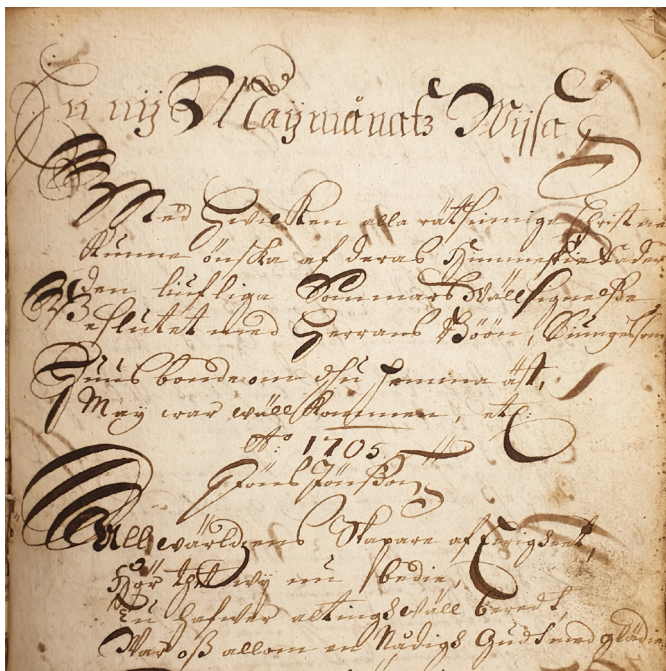 En nÿ Maÿmånatz Wijsa
Med Hwilken alla rätsinnige Christne
Kunne önska af deras Himmelske Fader
den liufliga Sommars Wällsignelße
Beslutet med Herrans Böön, Siunges som
Huusbonde om thu hemma äst,
May war wäll kommen, etc:
Aō: 1705.
Jöns Jönßon
All wärldzens Skapare af Ewigheet,
Hör thet wÿ nu bedie,
Tu hafwer altingh wäll beredt,
War oß allom en Nådigh Gudh med glädie